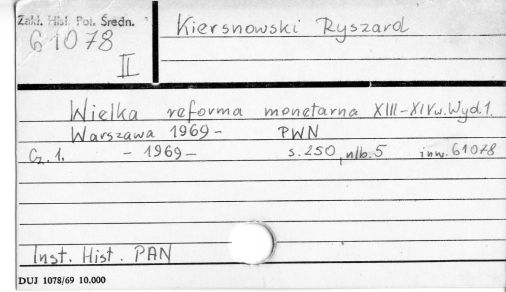 Zakł. Hist. Pol. Średn.
61078
II
Kiersnowski Ryszard
Wielka reforma monetarna XIII-XIVw. Wyd.1.
Warszawa 1969- PWN
Cz. 1. - 1969- s. 250, nlb. 5 inw. 61078
Inst. Hist. PAN
DUJ 1078/69 10.000